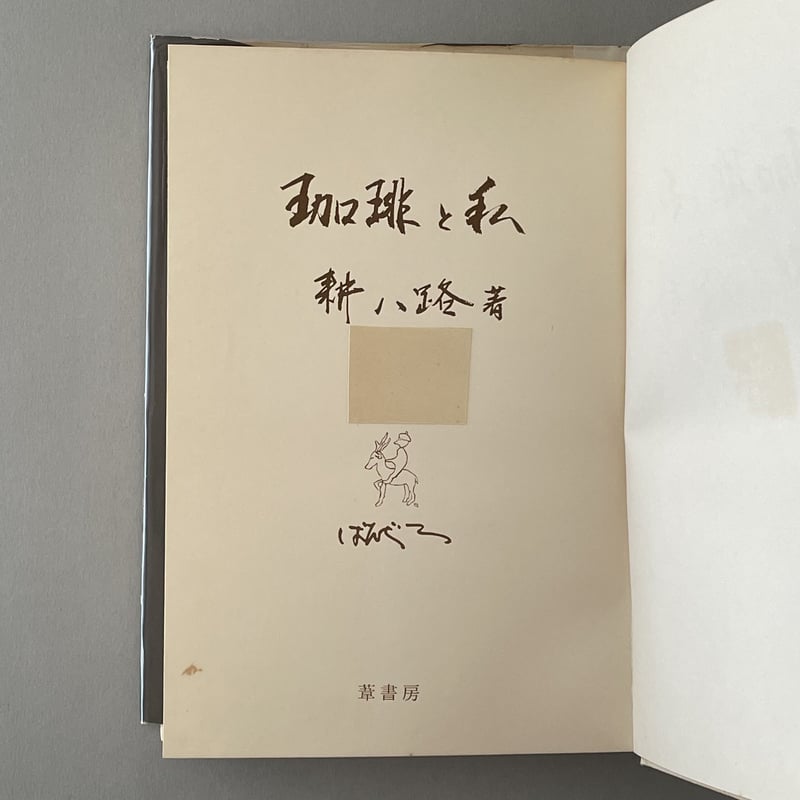 珈琲と私
耕八路 著
ばんぢろ
葦書房